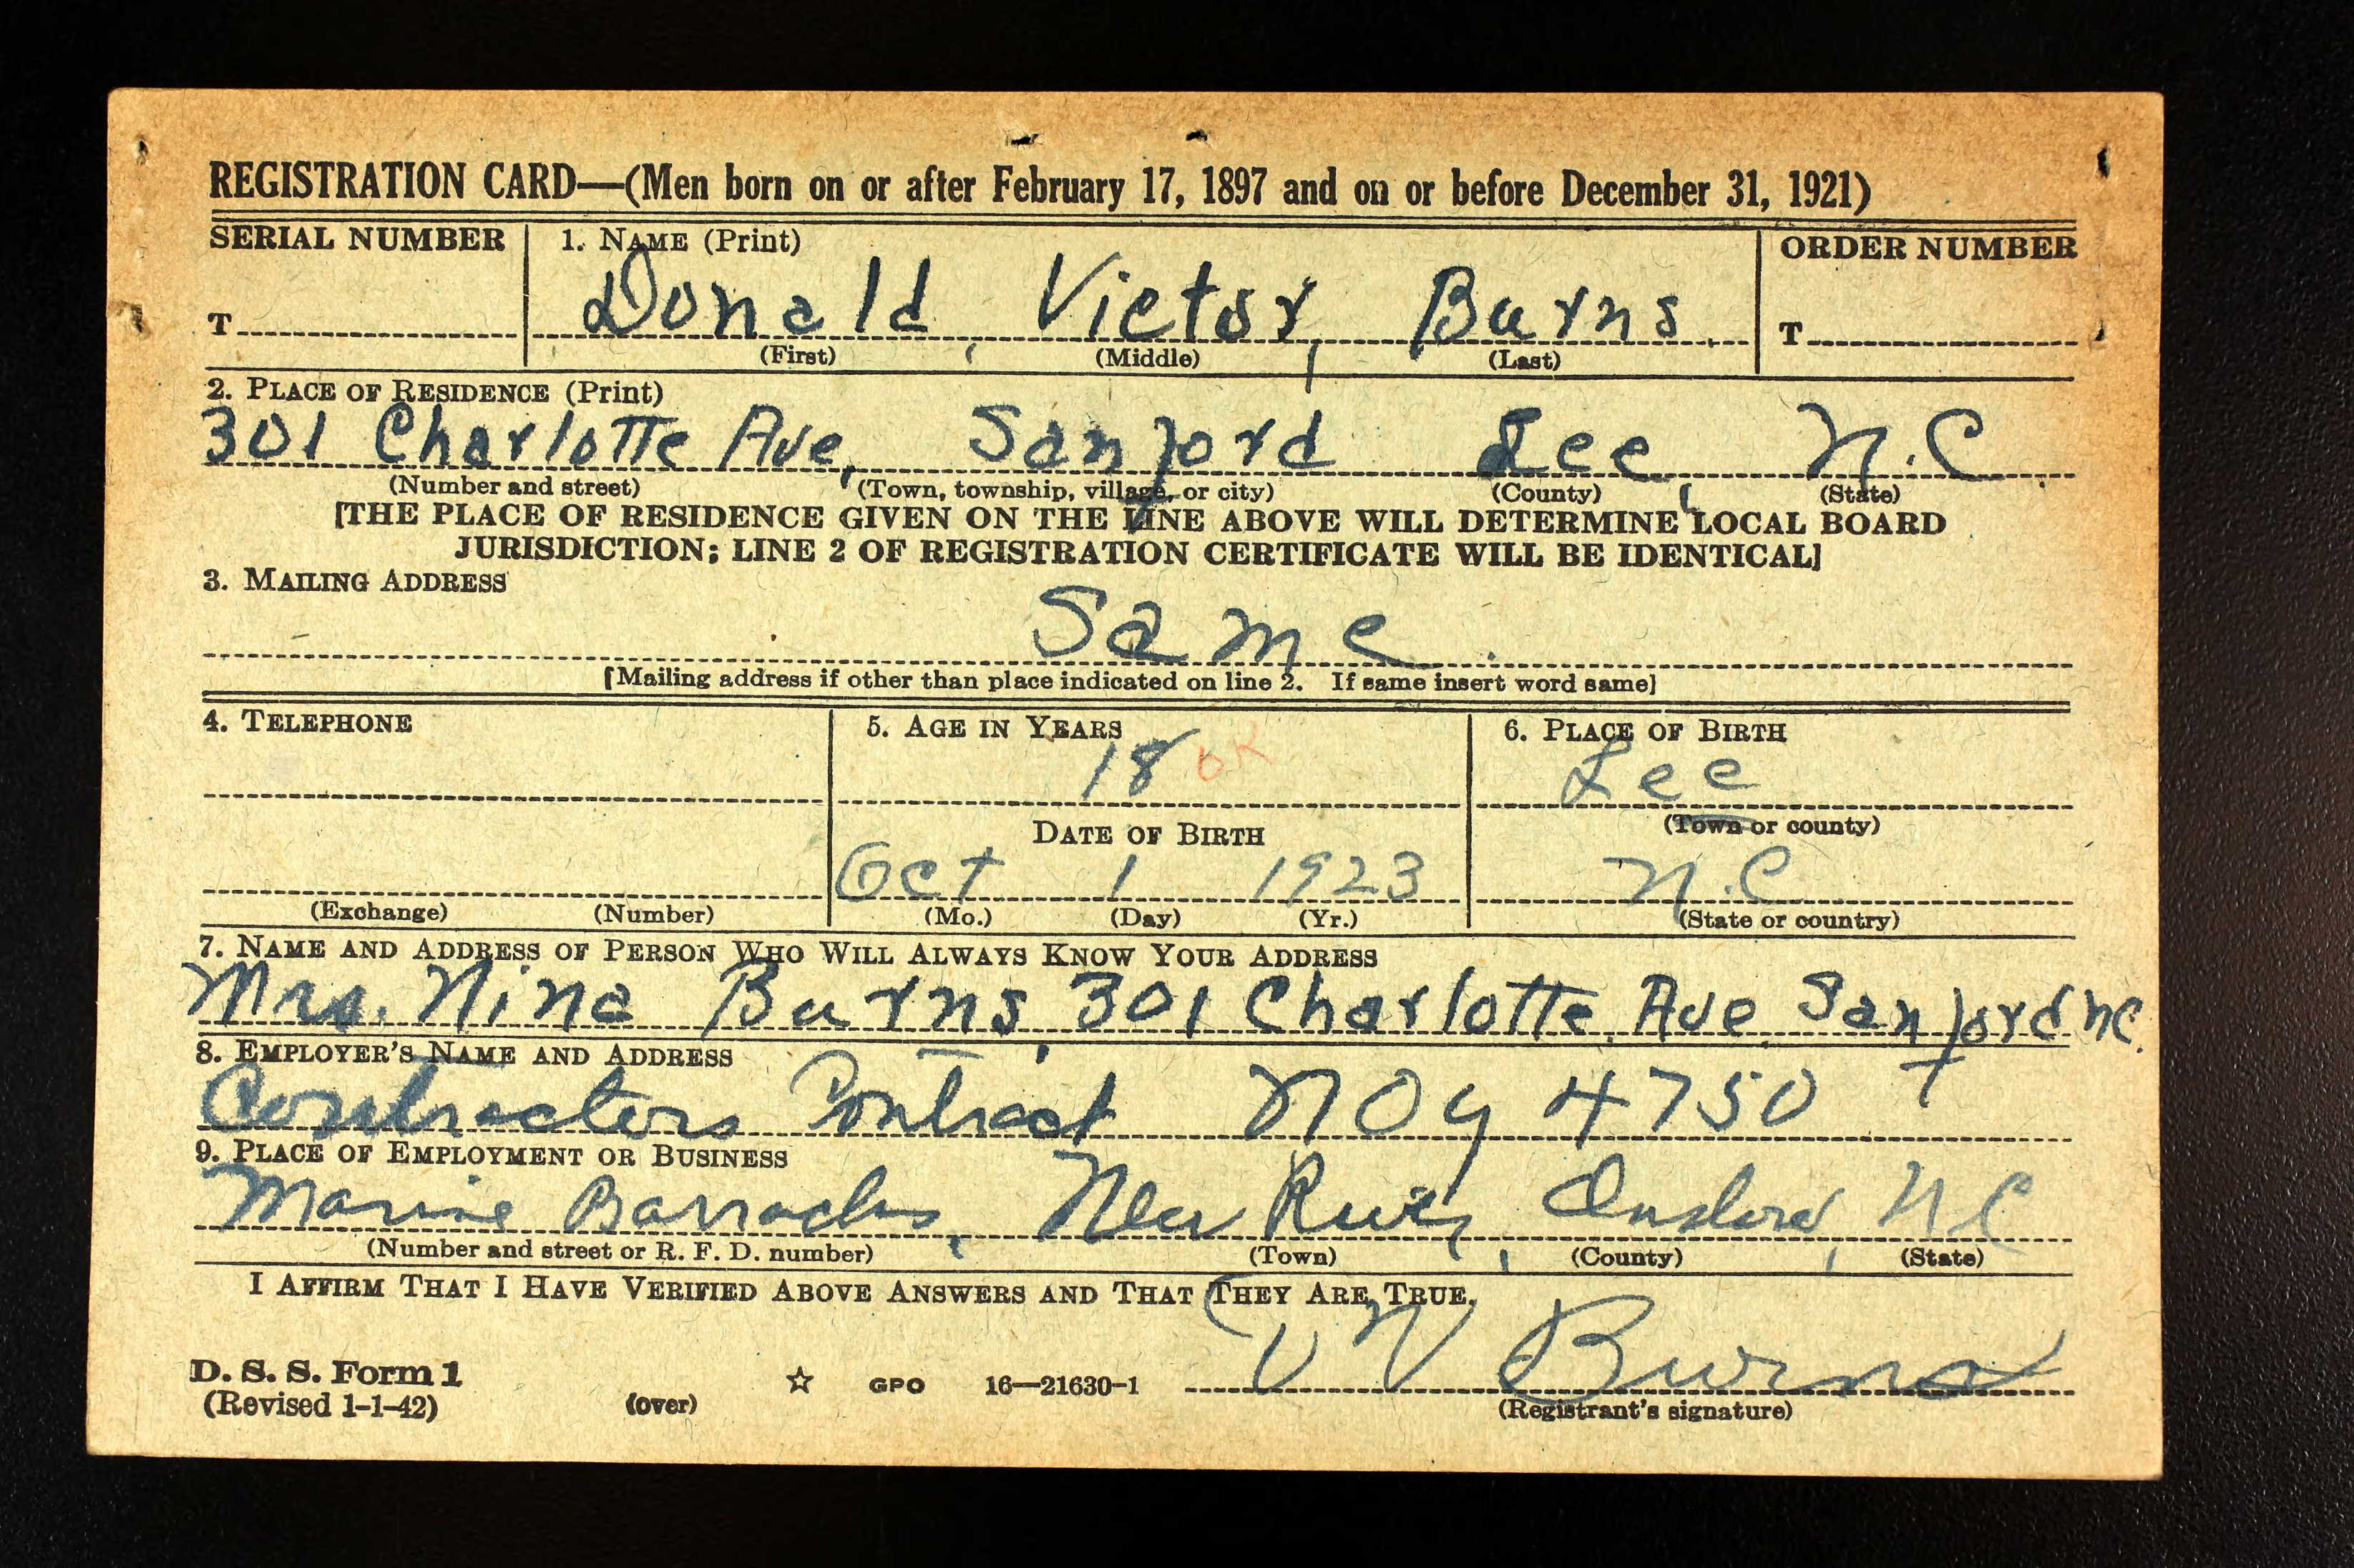 REGISTRATION CARD—(Men born on or after February 17, 1897 and on or before December 31, 1921)
SERIAL NUMBER 1. NAME (Print) ORDER NUMBER
T Donald, Victor, Burns. T
(First) (Middle) (Last)
2. PLACE OF RESIDENCE (Print)
301 Charlotte Ave, Sanford Lee, N.C
(Number and street) (Town, township, village, or city) (County) (State)
[THE PLACE OF RESIDENCE GIVEN ON THE LINE ABOVE WILL DETERMINE LOCAL BOARD
JURISDICTION; LINE 2 OF REGISTRATION CERTIFICATE WILL BE IDENTICAL]
3. MAILING ADDRESS
Same.
[Mailing address if other than place indicated on line 2. If same insert word same]
4. TELEPHONE 5. AGE IN YEARS 6. PLACE OF BIRTH
18 OK Lee
(Town or county)
DATE OF BIRTH
Oct 1 1923 N.C
(Exchange) (Number) (Mo.) (Day) (Yr.) (State or country)
7. NAME AND ADDRESS OF PERSON WHO WILL ALWAYS KNOW YOUR ADDRESS
Mrs. Nina Burns, 301 Charlotte Ave. Sanford NC.
8. EMPLOYER'S NAME AND ADDRESS
Contractors Contract NOy 4750
9. PLACE OF EMPLOYMENT OR BUSINESS
Marine Barracks, New River, Onslow, NC
(Number and street or R. F. D. number) (Town) (County) (State)
I AFFIRM THAT I HAVE VERIFIED ABOVE ANSWERS AND THAT THEY ARE TRUE.
D. S. S. Form 1
(Revised 1-1-42) (over) ☆ GPO 16—21630-1 D V Burns
(Registrant's signature)